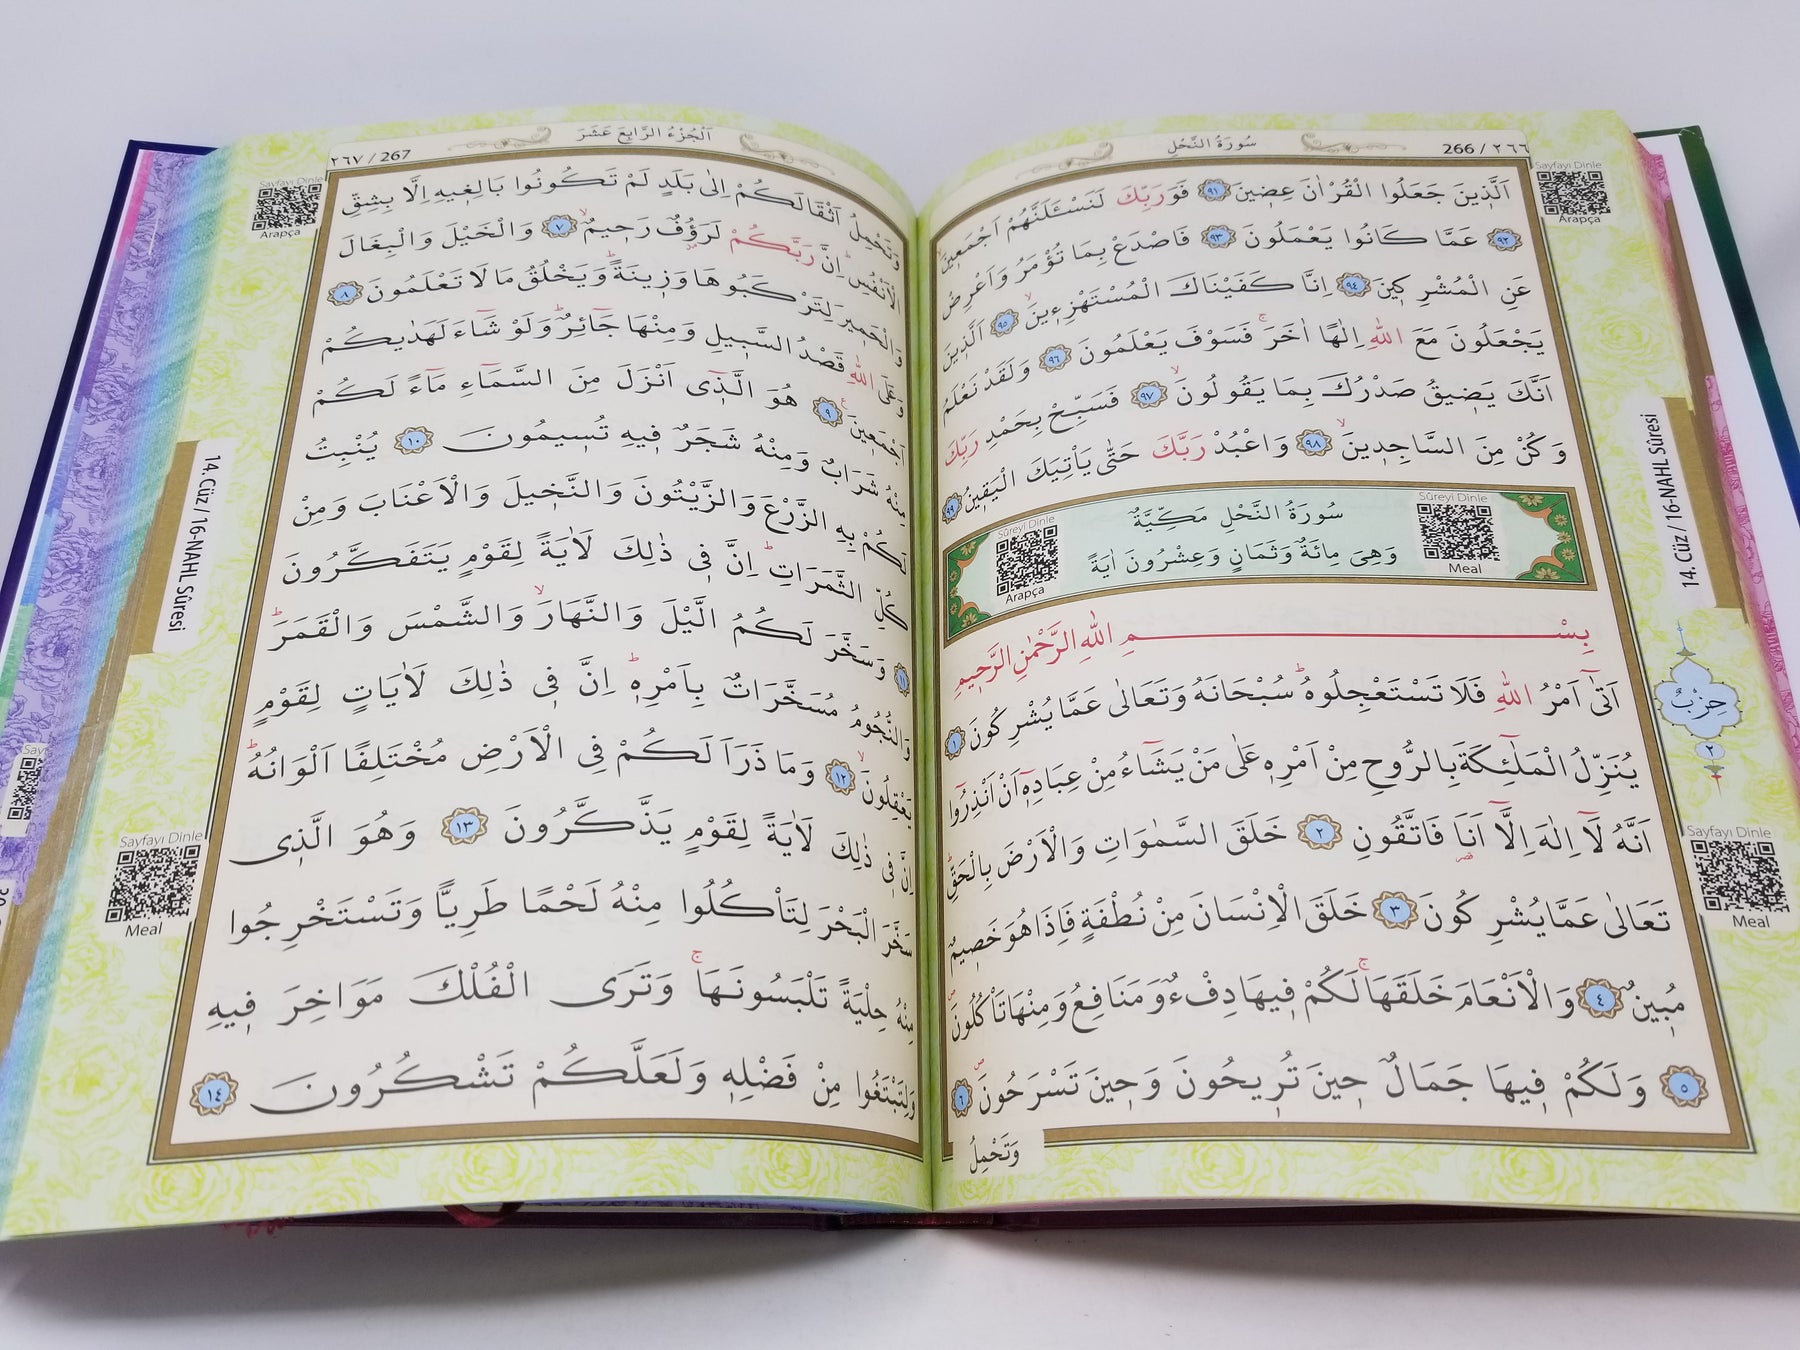 سُورَةُ النَّحْلِ
266 / ٢٦٦
Sayfayı Dinle
Arapça
اَلَّذ۪ينَ جَعَلُوا الْقُرْاٰنَ عِض۪ينَ ﴿٩١﴾ فَوَرَبِّكَ لَنَسْـَٔلَنَّهُمْ اَجْمَع۪ينَۙ
﴿٩٢﴾ عَمَّا كَانُوا يَعْمَلُونَ ﴿٩٣﴾ فَاصْدَعْ بِمَا تُؤْمَرُ وَاَعْرِضْ
عَنِ الْمُشْرِك۪ينَ ﴿٩٤﴾ اِنَّا كَفَيْنَاكَ الْمُسْتَهْزِء۪ينَۙ ﴿٩٥﴾ اَلَّذ۪ينَ
يَجْعَلُونَ مَعَ اللّٰهِ اِلٰهًا اٰخَرَۚ فَسَوْفَ يَعْلَمُونَ ﴿٩٦﴾ وَلَقَدْ نَعْلَمُ
اَنَّكَ يَض۪يقُ صَدْرُكَ بِمَا يَقُولُونَۙ ﴿٩٧﴾ فَسَبِّحْ بِحَمْدِ رَبِّكَ
وَكُنْ مِنَ السَّاجِد۪ينَۙ ﴿٩٨﴾ وَاعْبُدْ رَبَّكَ حَتّٰى يَأْتِيَكَ الْيَق۪ينُ ﴿٩٩﴾
Sûreyi Dinle
Meal
سُورَةُ النَّحْلِ مَكِّيَّةٌ
وَهِىَ مِائَةٌ وَثَمَانٍ وَعِشْرُونَ اٰيَةً
Sûreyi Dinle
Arapça
بِسْمِ اللّٰهِ الرَّحْمٰنِ الرَّح۪يمِ
اَتٰٓى اَمْرُ اللّٰهِ فَلَا تَسْتَعْجِلُوهُۜ سُبْحَانَهُ وَتَعَالٰى عَمَّا يُشْرِكُونَ ﴿١﴾
يُنَزِّلُ الْمَلٰٓئِكَةَ بِالرُّوحِ مِنْ اَمْرِه۪ عَلٰى مَنْ يَشَٓاءُ مِنْ عِبَادِه۪ٓ اَنْ اَنْذِرُٓوا
اَنَّهُ لَٓا اِلٰهَ اِلَّٓا اَنَا۬ فَاتَّقُونِ ﴿٢﴾ خَلَقَ السَّمٰوَاتِ وَالْاَرْضَ بِالْحَقِّۜ
تَعَالٰى عَمَّا يُشْرِكُونَ ﴿٣﴾ خَلَقَ الْاِنْسَانَ مِنْ نُطْفَةٍ فَاِذَا هُوَ خَص۪يمٌ
مُب۪ينٌ ﴿٤﴾ وَالْاَنْعَامَ خَلَقَهَاۚ لَكُمْ ف۪يهَا دِفْءٌ وَمَنَافِعُ وَمِنْهَا تَأْكُلُونَۖ
﴿٥﴾ وَلَكُمْ ف۪يهَا جَمَالٌ ح۪ينَ تُر۪يحُونَ وَح۪ينَ تَسْرَحُونَۖ ﴿٦﴾
وَتَحْمِلُ
14. Cüz / 16-NAHL Sûresi
حِزْبٌ
٢
Sayfayı Dinle
Meal
٢٦٧ / 267
اَلْجُزْءُ الرَّابِعَ عَشَرَ
Sayfayı Dinle
Arapça
وَتَحْمِلُ اَثْقَالَكُمْ اِلٰى بَلَدٍ لَمْ تَكُونُوا بَالِغ۪يهِ اِلَّا بِشِقِّ
الْاَنْفُسِۜ اِنَّ رَبَّكُمْ لَرَؤُ۫فٌ رَح۪يمٌۙ ﴿٧﴾ وَالْخَيْلَ وَالْبِغَالَ
وَالْحَم۪يرَ لِتَرْكَبُوهَا وَز۪ينَةًۜ وَيَخْلُقُ مَا لَا تَعْلَمُونَ ﴿٨﴾
وَعَلَى اللّٰهِ قَصْدُ السَّب۪يلِ وَمِنْهَا جَٓائِرٌۜ وَلَوْ شَٓاءَ لَهَدٰيكُمْ
اَجْمَع۪ينَ۟ ﴿٩﴾ هُوَ الَّذ۪ٓى اَنْزَلَ مِنَ السَّمَٓاءِ مَٓاءً لَكُمْ
مِنْهُ شَرَابٌ وَمِنْهُ شَجَرٌ ف۪يهِ تُس۪يمُونَ ﴿١٠﴾ يُنْبِتُ
لَكُمْ بِهِ الزَّرْعَ وَالزَّيْتُونَ وَالنَّخ۪يلَ وَالْاَعْنَابَ وَمِنْ
كُلِّ الثَّمَرَاتِۜ اِنَّ ف۪ى ذٰلِكَ لَاٰيَةً لِقَوْمٍ يَتَفَكَّرُونَ
﴿١١﴾ وَسَخَّرَ لَكُمُ الَّيْلَ وَالنَّهَارَۙ وَالشَّمْسَ وَالْقَمَرَۜ
وَالنُّجُومُ مُسَخَّرَاتٌ بِاَمْرِه۪ۜ اِنَّ ف۪ى ذٰلِكَ لَاٰيَاتٍ لِقَوْمٍ
يَعْقِلُونَۙ ﴿١٢﴾ وَمَا ذَرَاَ لَكُمْ فِى الْاَرْضِ مُخْتَلِفًا اَلْوَانُهُۜ
اِنَّ ف۪ى ذٰلِكَ لَاٰيَةً لِقَوْمٍ يَذَّكَّرُونَ ﴿١٣﴾ وَهُوَ الَّذ۪ى
سَخَّرَ الْبَحْرَ لِتَأْكُلُوا مِنْهُ لَحْمًا طَرِيًّا وَتَسْتَخْرِجُوا
مِنْهُ حِلْيَةً تَلْبَسُونَهَاۚ وَتَرَى الْفُلْكَ مَوَاخِرَ ف۪يهِ
وَلِتَبْتَغُوا مِنْ فَضْلِه۪ وَلَعَلَّكُمْ تَشْكُرُونَ ﴿١٤﴾
14. Cüz / 16-NAHL Sûresi
Sayfayı Dinle
Meal